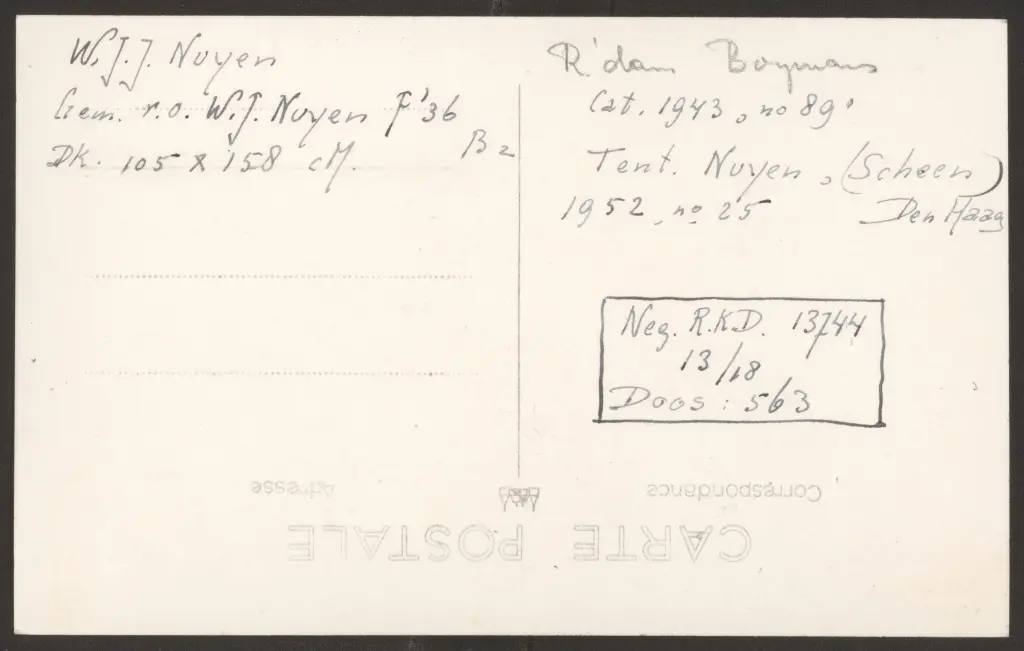 W.J.J. Nuyen
Gem. r.o. W.J. Nuyen F '36
B2
DK. 105 x 158 cM.
R'dam Boymans
Cat. 1943, no 89.
Tent. Nuyen, (Scheen)
1952, no 25 Den Haag
Neg. R.K.D. 13744
13/18
Doos: 563
Correspondance
Adresse
CARTE POSTALE